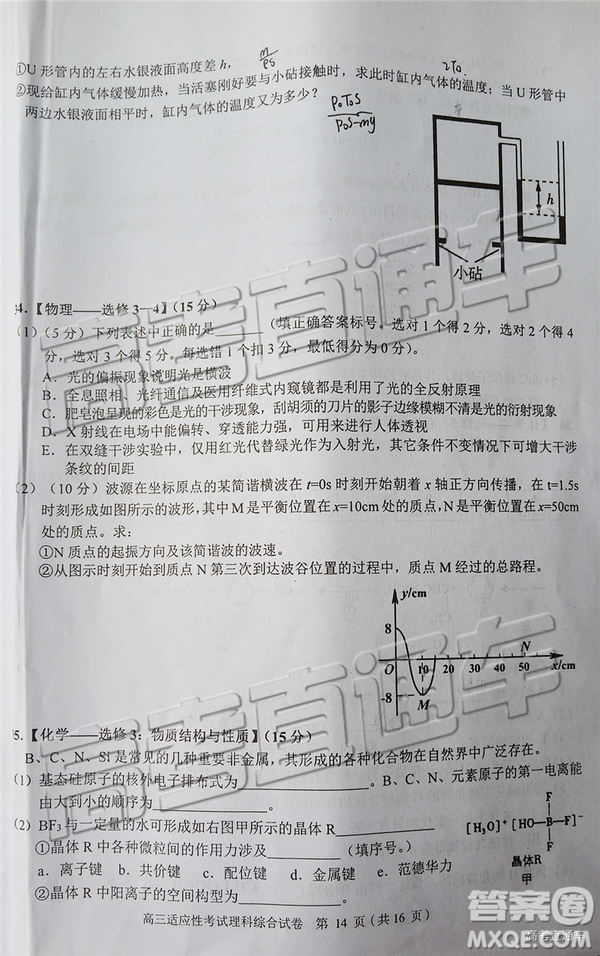 ①U形管内的左右水银液面高度差h,
②现给缸内气体缓慢加热，当活塞刚好要与小砧接触时，求此时缸内气体的温度；当U形管中
两边水银液面相平时，缸内气体的温度又为多少？
m/ps
2T₀
P₀T₀S
P₀S-mg
h
小砧
4.【物理——选修3—4】(15分)
(1)(5分)下列表述中正确的是________(填正确答案标号。选对1个得2分，选对2个得4
分，选对3个得5分。每选错1个扣3分，最低得分为0分)。
A、光的偏振现象说明光是横波
B、全息照相、光纤通信及医用纤维式内窥镜都是利用了光的全反射原理
C、肥皂泡呈现的彩色是光的干涉现象，刮胡须的刀片的影子边缘模糊不清是光的衍射现象
D、X射线在电场中能偏转、穿透能力强，可用来进行人体透视
E、在双缝干涉实验中，仅用红光替代绿光作为入射光，其它条件不变情况下可增大干涉
条纹的间距
(2)(10分)波源在坐标原点的某简谐横波在t=0s时刻开始朝着x轴正方向传播，在t=1.5s
时刻形成如图所示的波形，其中M是平衡位置在x=10cm处的质点，N是平衡位置在x=50cm
处的质点。求：
①N质点的起振方向及该简谐波的波速。
②从图示时刻开始到质点N第三次到达波谷位置的过程中，质点M经过的总路程。
y/cm
8
N
O 10 20 30 40 50 x/cm
-8
M
5.【化学——选修3：物质结构与性质】(15分)
B、C、N、Si是几种重要的非金属，其形成的各种化合物在自然界中广泛存在。
(1)基态硅原子的核外电子排布式为________________；B、C、N元素原子的第一电离能
由大到小的顺序为________________。
(2)BF₃与一定量的水可形成如右图甲所示的晶体R
①晶体R中各种微粒间的作用力涉及________(填序号)。
a．离子键 b．共价键 c．配位键 d．金属键 e．范德华力
②晶体R中阳离子的空间构型为________________。
F
[H₃O]⁺[HO—B—F]⁻
F
晶体R
甲
高三适应性考试理科综合试卷 第14页(共16页)
高考直通车
高考直通车
高考直通车
答案圈
MXQE.COM
高考直通车